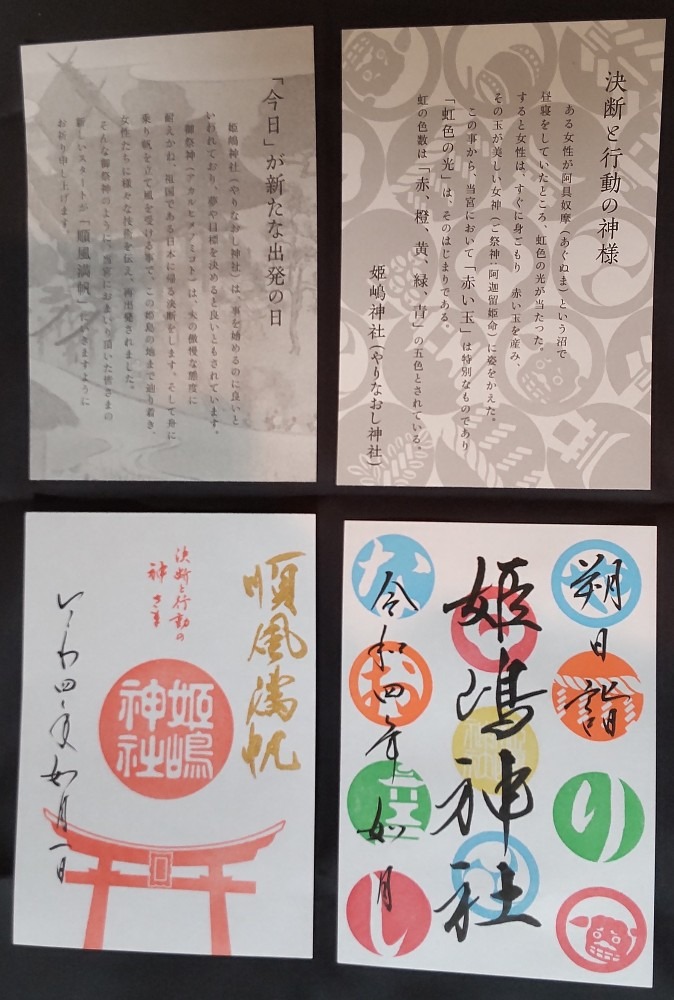 「今日」が新たな出発の日
姫嶋神社(やりなおし神社)は、事を始めるのに良いと
いわれており、夢や目標を決めると良いともされています。
御祭神(アカルヒメノミコト)は、夫の傲慢な態度に
耐えかね、祖国である日本に帰る決断をします。そして舟に
乗り帆を立て風を受ける事で、この姫島の地まで辿り着き、
女性たちに様々な技術を伝え、再出発されました。
そんな御祭神のように、当宮におまいり頂いた皆さまの
新しいスタートが「順風満帆」にいきますように
お祈り申し上げます。
決断と行動の神様
ある女性が阿具奴摩(あぐぬま)という沼で
昼寝をしていたところ、虹色の光が当たった。
すると女性は、すぐに身ごもり 赤い玉を産み、
その玉が美しい女神(ご祭神:阿迦留姫命)に姿をかえた。
この事から、当宮において「赤い玉」は特別なものであり
「虹色の光」は、そのはじまりである。
虹の色数は「赤、橙、黄、緑、青」の五色とされている。
姫嶋神社(やりなおし神社)
順風満帆
決断と行動の
神さま
姫嶋
神社
れいわ四年如月一日
朔日詣
姫嶋神社
令和四年如月
の
な
お
し